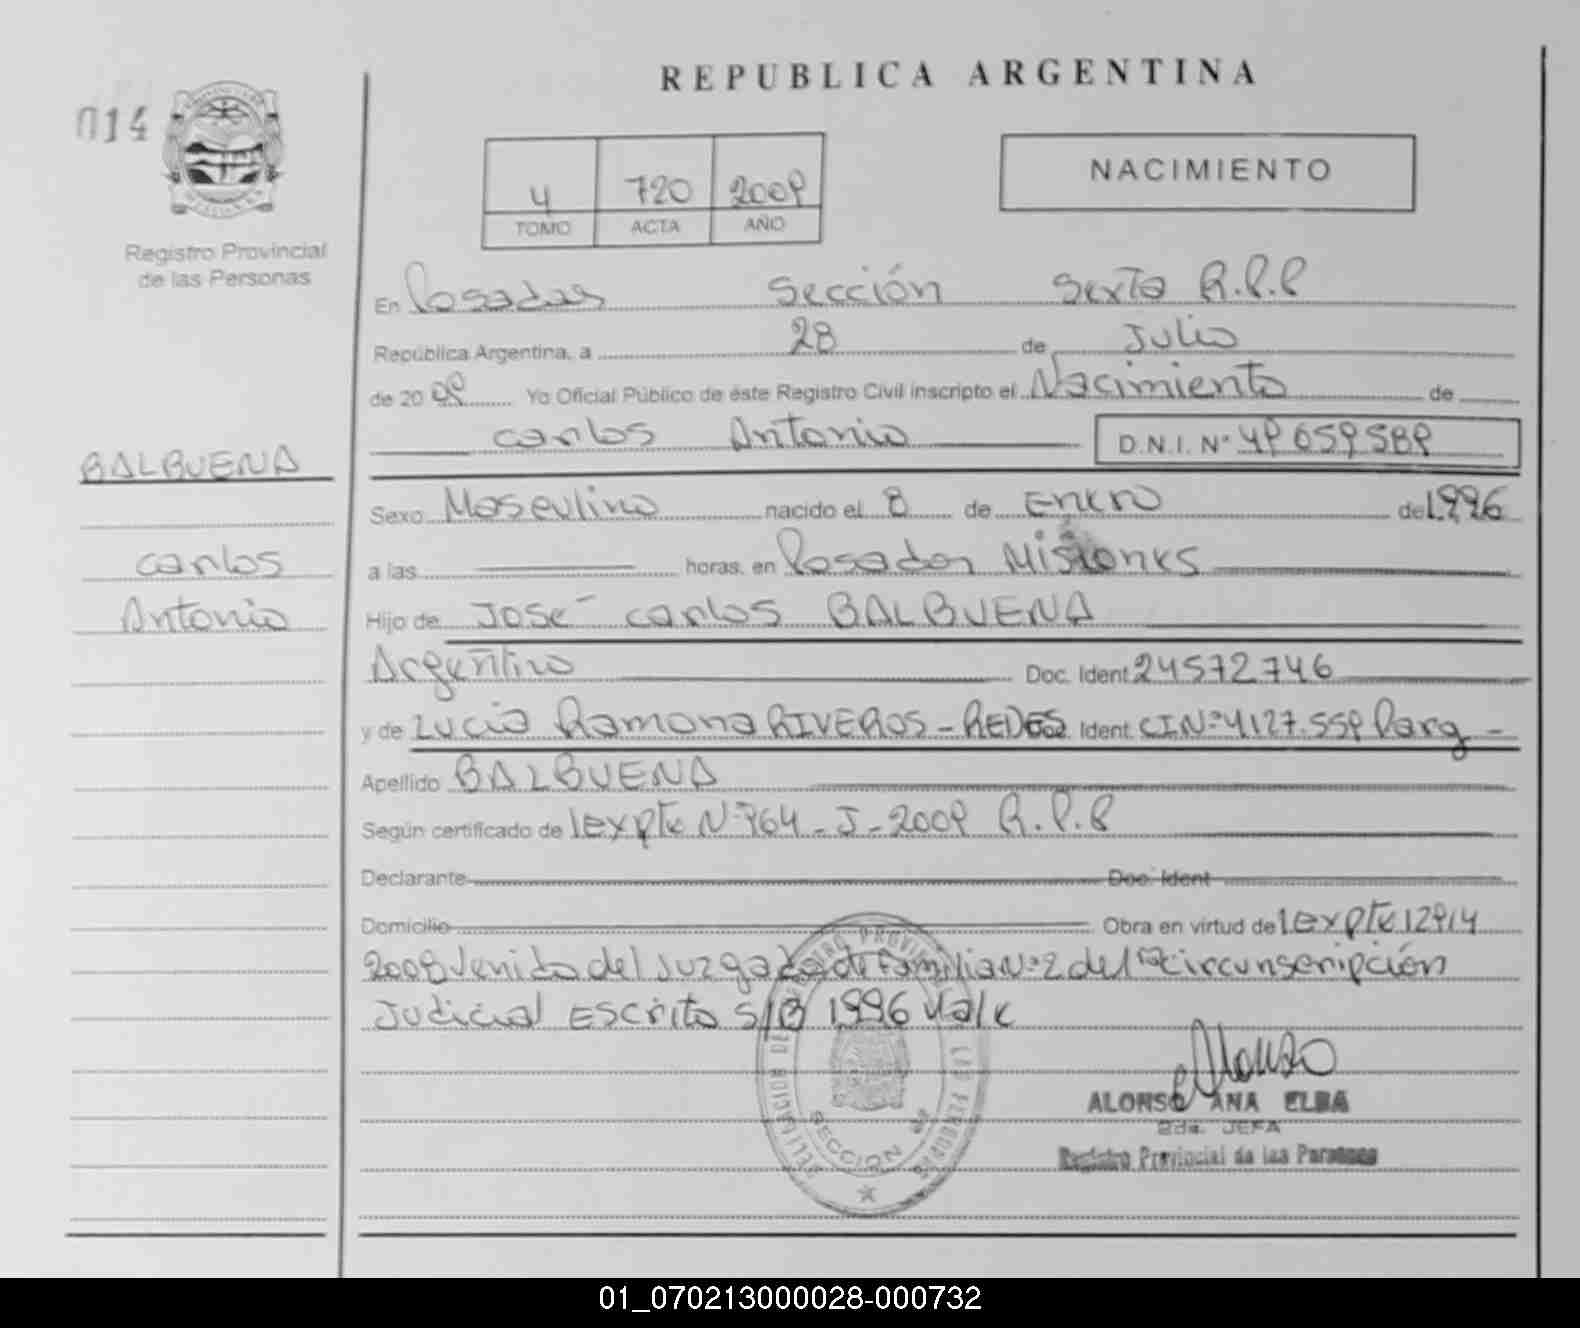 REPUBLICA ARGENTINA
014
NACIMIENTO
4 720 2009
TOMO ACTA AÑO
Registro Provincial
de las Personas
En Posadas Sección Sexta R.P.P
República Argentina, a 28 de Julio
de 2009 Yo Oficial Público de éste Registro Civil inscripto el Nacimiento de
Carlos Antonio D.N.I. Nº 49659589
BALBUENA
Carlos
Antonio
Sexo Masculino nacido el 8 de Enero de 1996
a las horas, en Posadas Misiones
Hijo de José Carlos BALBUENA
Argentino Doc. Ident 24572746
y de Lucia Ramona RIVEROS - REDES Doc. Ident. CINº 4127.559 Parg -
Apellido BALBUENA
Según certificado de expte Nº 964 - J - 2009 R.P.P
Declarante Doc. Ident
Domicilio Obra en virtud de expte 12914
2008 Venido del Juzgado de Familia Nº 2 del 1ra Circunscripción
Judicial Escrito S/B 1996 Vale
SECCION
ALONSO ANA ELBA
2da. JEFA
Registro Provincial de las Personas
01_070213000028-000732